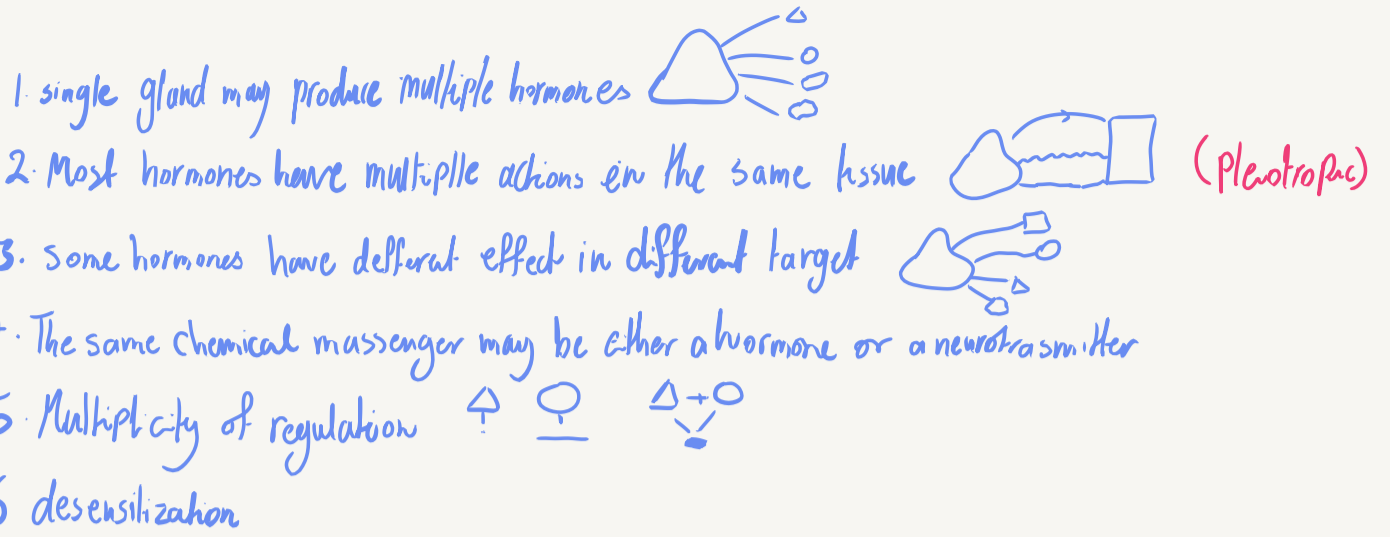 1. single gland may produce multiple hormones
2. Most hormones have multiplle actions ein the same tissue (pleiotropic)
3. some hormones have defferat effect in different target
. The same chemical massenger may be either a hormone or a neurotrasmitter
5. Multiplicity of regulation
6 desensilization